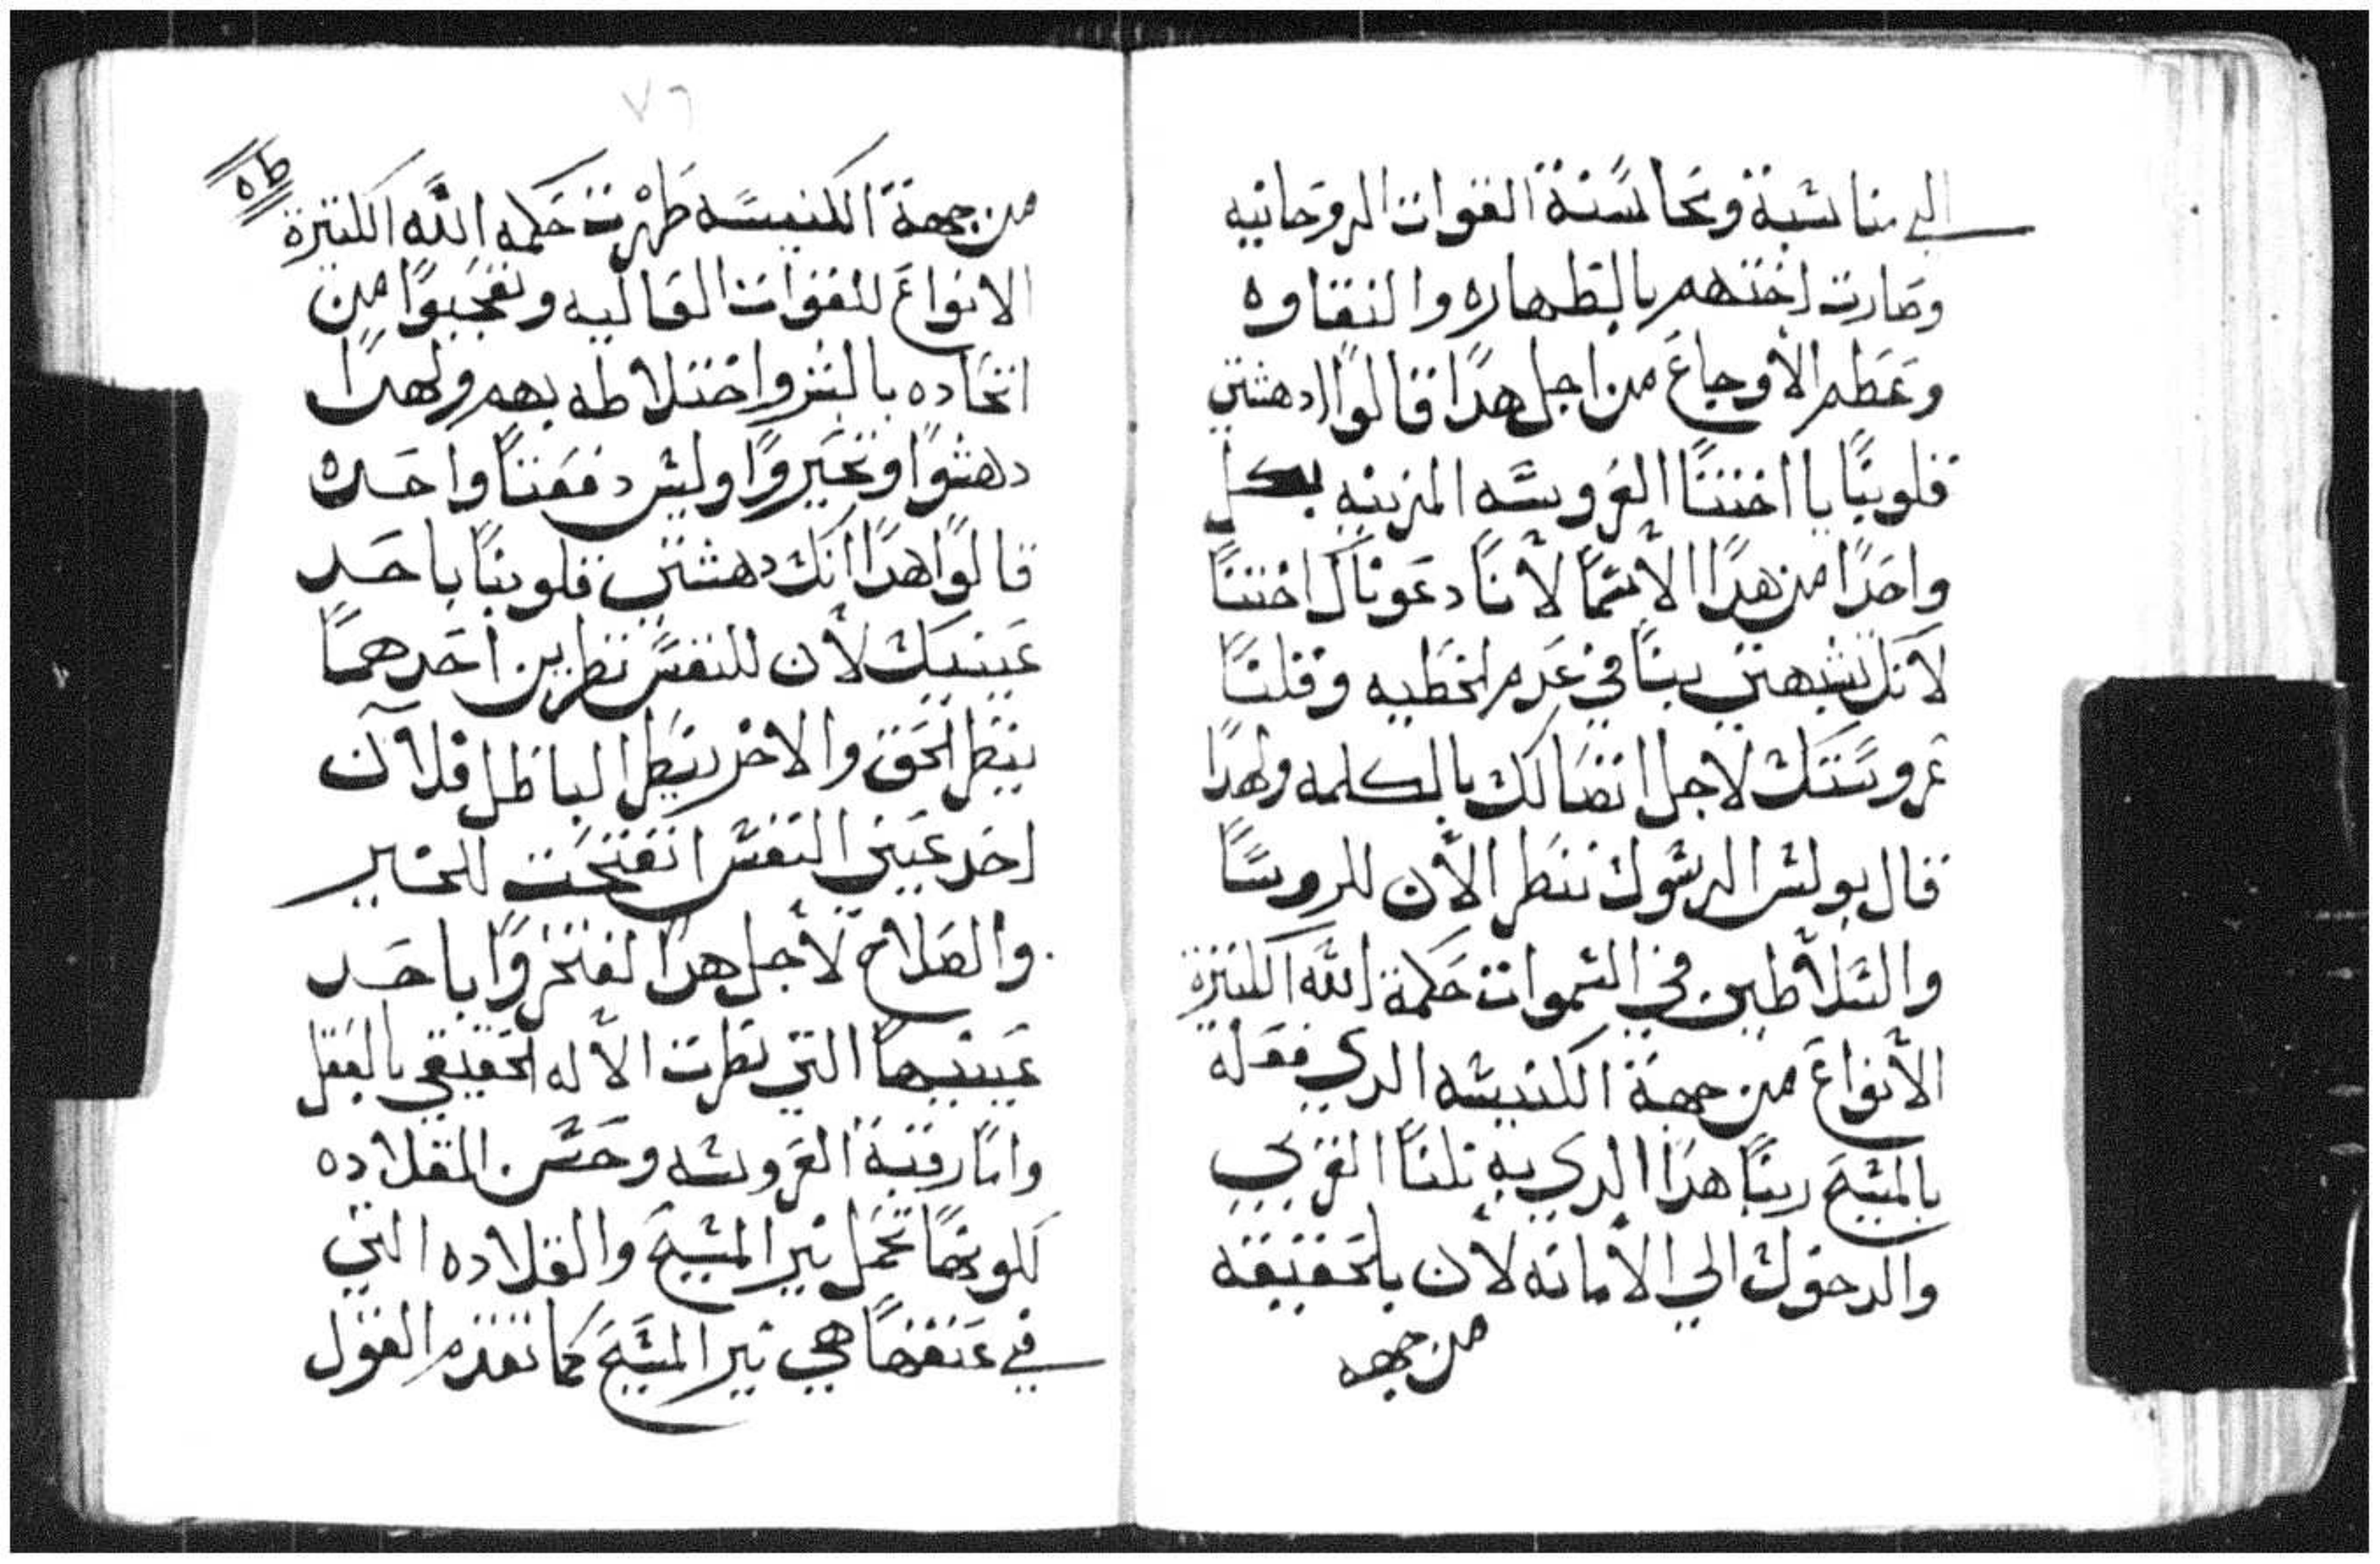 الي مناسبة ومجانسة القوات الروحانيه
وصارت اختهم بالطهاره والنقاوه
وعظم الاوجاع من اجل هدا قالوا ادهشتي
قلوبنا يا اختنا العروسه المزينه بكل
واحدا من هدا الاسما لانا دعوناك اختنا
لانك تشبهتي بنا في عدم الخطيه وقلنا
عروستك لاجل اتصالك بالكلمه ولهدا
قال بولس الرسول ننظر الان للروسا
والسلاطين في السموات حكمة الله الكتيرة
الانواع من جهة الكنيسه الدي فعله
بالمسيح ربنا هدا الدي به نلنا القربي
والدخول الي الامانه لان بالحقيقه
من جهه
٧٦
طه
من جهة الكنيسه ظهرت حكمه الله الكتيرة
الانواع للقوات العاليه وتعجبوا من
اتحاده بالبشر واختلاطه بهم ولهدا
دهشوا وتحيروا وليس دفعتا واحده
قالوا هدا انك دهشتي قلوبنا باحد
عينيك لان للنفس نظرين احدهما
ينظر الحق والاخر ينظر الباطل فلان
احد عيني النفس انفتحت للخير
والصلاح لاجل هدا افتخروا باحد
عينيها التي نظرت الاله الحقيقي بالعقل
واما رقبة العروسه وحسن القلاده
لكونها تحمل نير المسيح والقلاده التي
في عنقها هي نير المسيح كما تقدم القول